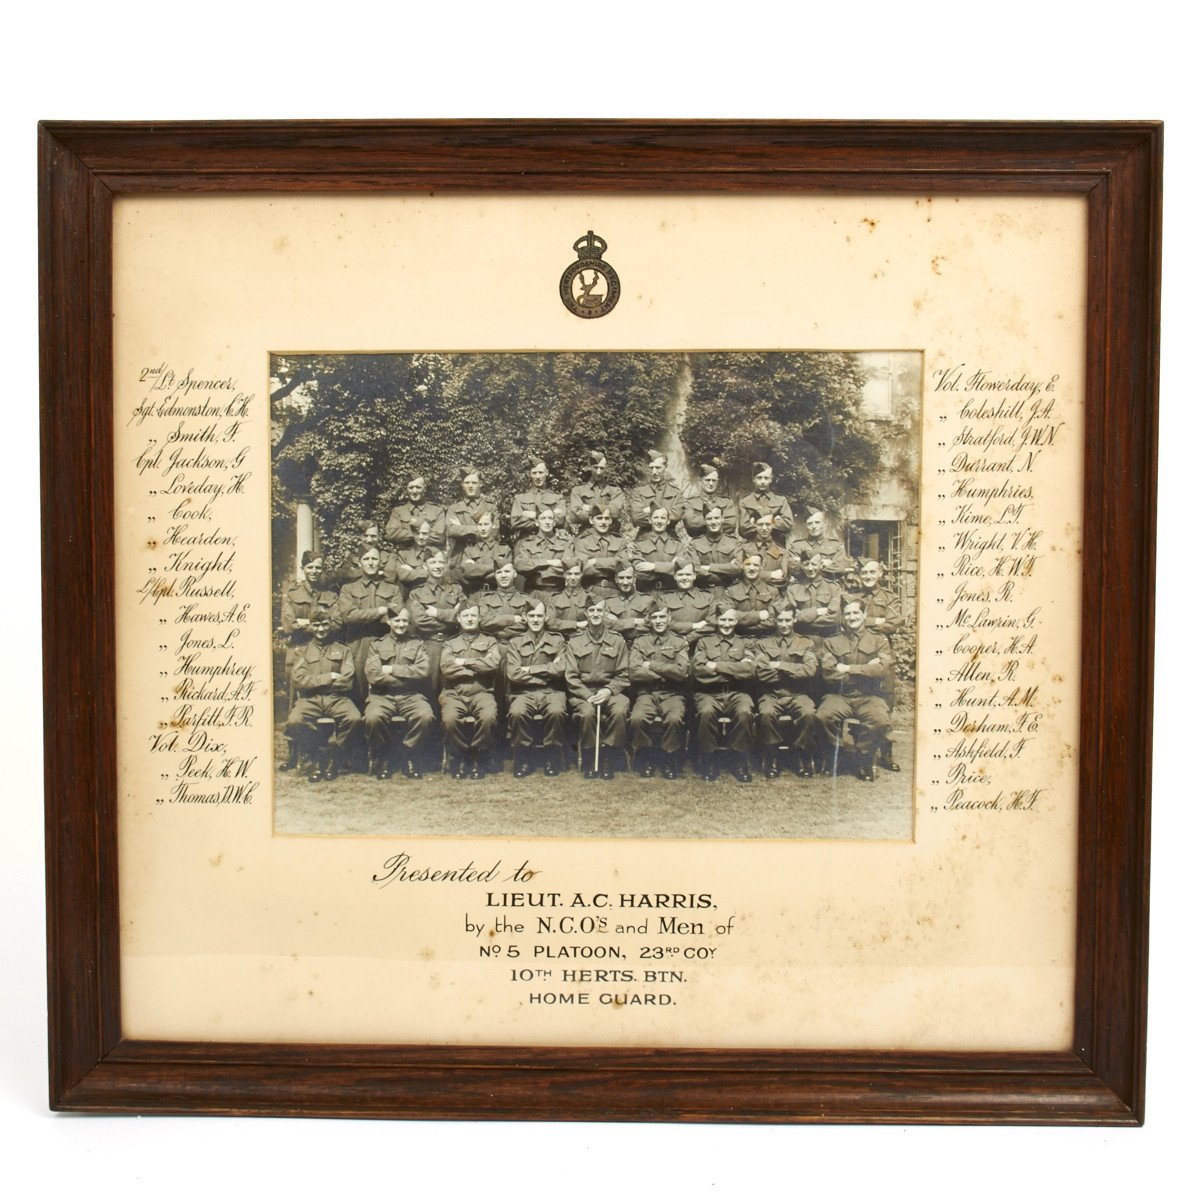 THE HERTFORDSHIRE REGIMENT
2nd/Lt Spencer,
Sgt. Edmonston, C.H.
„ Smith, F.
Cpl. Jackson, G
„ Loveday, H.
„ Cook,
„ Hearden,
„ Knight,
L/Cpl. Russell,
„ Hawes, A.E.
„ Jones, L.
„ Humphrey,
„ Rickard, A.F.
„ Parfitt, F.R.
Vol. Dix,
„ Peek, H.W.
„ Thomas, D.W.C.
Vol. Flowerday, E.
„ Coleshill, J.A.
„ Stratford, J.W.N.
„ Durrant, N.
„ Humphries,
„ Kime, L.F.
„ Wright, V.H.
„ Rice, H.W.F.
„ Jones, R.
„ McLawrin, G.
„ Cooper, H.A.
„ Allen, R.
„ Hunt, A.M.
„ Derham, F.E.
„ Ashfield, F.
„ Price,
„ Peacock, H.F.
Presented to
LIEUT. A.C. HARRIS,
by the N.C.O's and Men of
No 5 PLATOON, 23RD COY
10TH HERTS. BTN.
HOME GUARD.